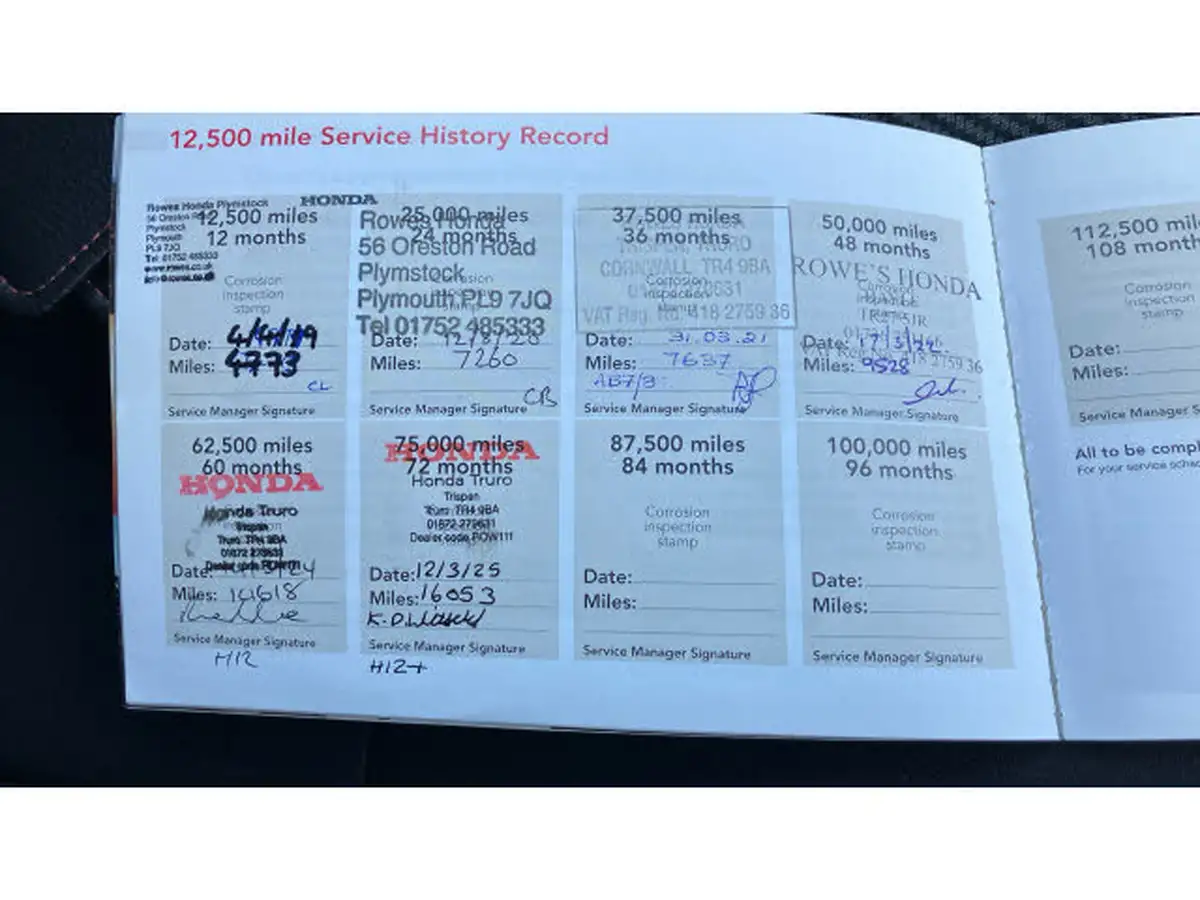 12,500 mile Service History Record
Rowes Honda Plymstock
HONDA
56 Oreston
Plymstock
Plymouth
PL9 7JQ
Tel: 01752 485333
www.rowes.co.uk
12,500 miles
12 months
Corrosion
inspection
stamp
Date: 4/4/19
Miles: 4773
CL
Service Manager Signature
25,000 miles
24 months
Rowes Honda
56 Oreston Road
Plymstock
Plymouth PL9 7JQ
Tel 01752 485333
Date: 12/8/20
Miles: 7260
CB
Service Manager Signature
37,500 miles
36 months
TRURO
CORNWALL TR4 9BA
Corrosion
inspection
VAT Reg. No. 418 2759 36
Date: 31.03.21
Miles: 7637
Service Manager Signature
50,000 miles
48 months
ROWE'S HONDA
Date: 17/3/22
418 2759 36
Miles: 9528
Service Manager Signature
62,500 miles
60 months
HONDA
Honda Truro
Trispen
Truro TR4 9BA
01872 279631
Dealer code ROW111
Date:
Miles: 14618
Service Manager Signature
H12
75,000 miles
HONDA
72 months
Honda Truro
Trispen
Truro TR4 9BA
01872 279631
Dealer code ROW111
Date: 12/3/25
Miles: 16053
Service Manager Signature
H12+
87,500 miles
84 months
Corrosion
inspection
stamp
Date:
Miles:
Service Manager Signature
100,000 miles
96 months
Corrosion
inspection
stamp
Date:
Miles:
Service Manager Signature
112,500 mil
108 month
Corrosion
inspection
stamp
Date:
Miles:
Service Manager S
All to be compl
For your service sche